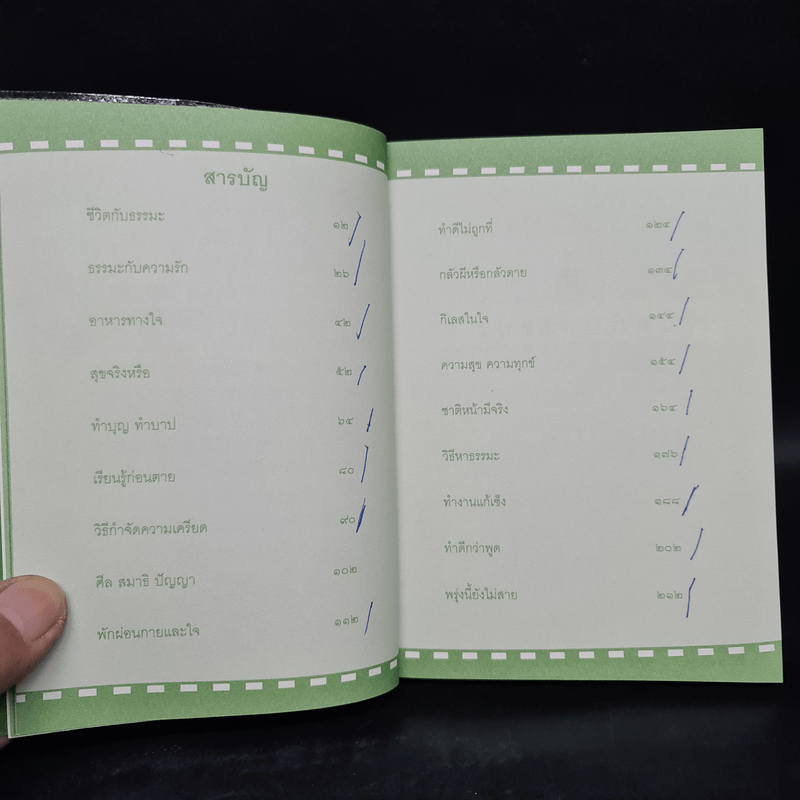 สารบัญ
ชีวิตกับธรรมะ ๑๒
ธรรมะกับความรัก ๒๖
อาหารทางใจ ๔๒
สุขจริงหรือ ๕๒
ทำบุญ ทำบาป ๖๔
เรียนรู้ก่อนตาย ๘๐
วิธีกำจัดความเครียด ๙๐
ศีล สมาธิ ปัญญา ๑๐๒
พักผ่อนกายและใจ ๑๑๒
ทำดีไม่ถูกที่ ๑๒๔
กลัวผีหรือกลัวตาย ๑๓๔
กิเลสในใจ ๑๔๔
ความสุข ความทุกข์ ๑๕๔
ชาติหน้ามีจริง ๑๖๔
วิธีหาธรรมะ ๑๗๖
ทำงานแก้เซ็ง ๑๘๘
ทำดีกว่าพูด ๒๐๒
พรุ่งนี้ยังไม่สาย ๒๑๒